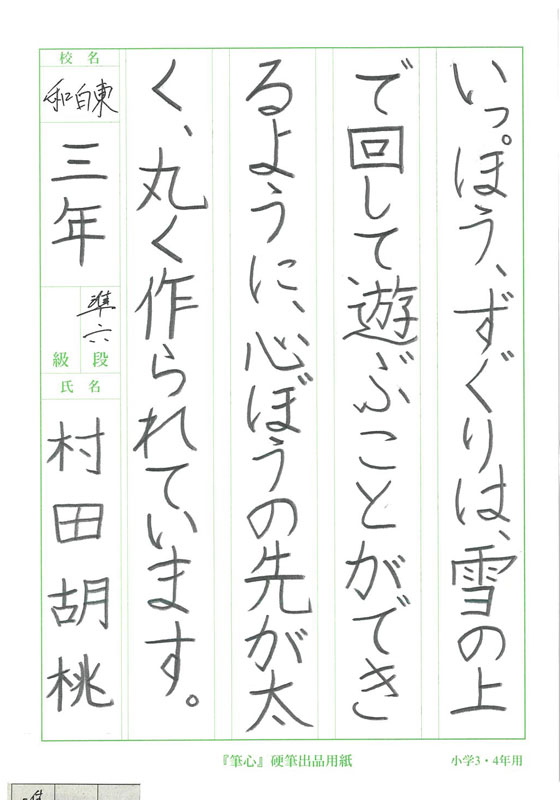 いっぽう、ずぐりは、雪の上
で回して遊ぶことができ
るように、心ぼうの先が太
く、丸く作られています。
校名
和白東
三年
準六
級 段
氏名
村田胡桃
『筆心』硬筆出品用紙
小学3・4年用